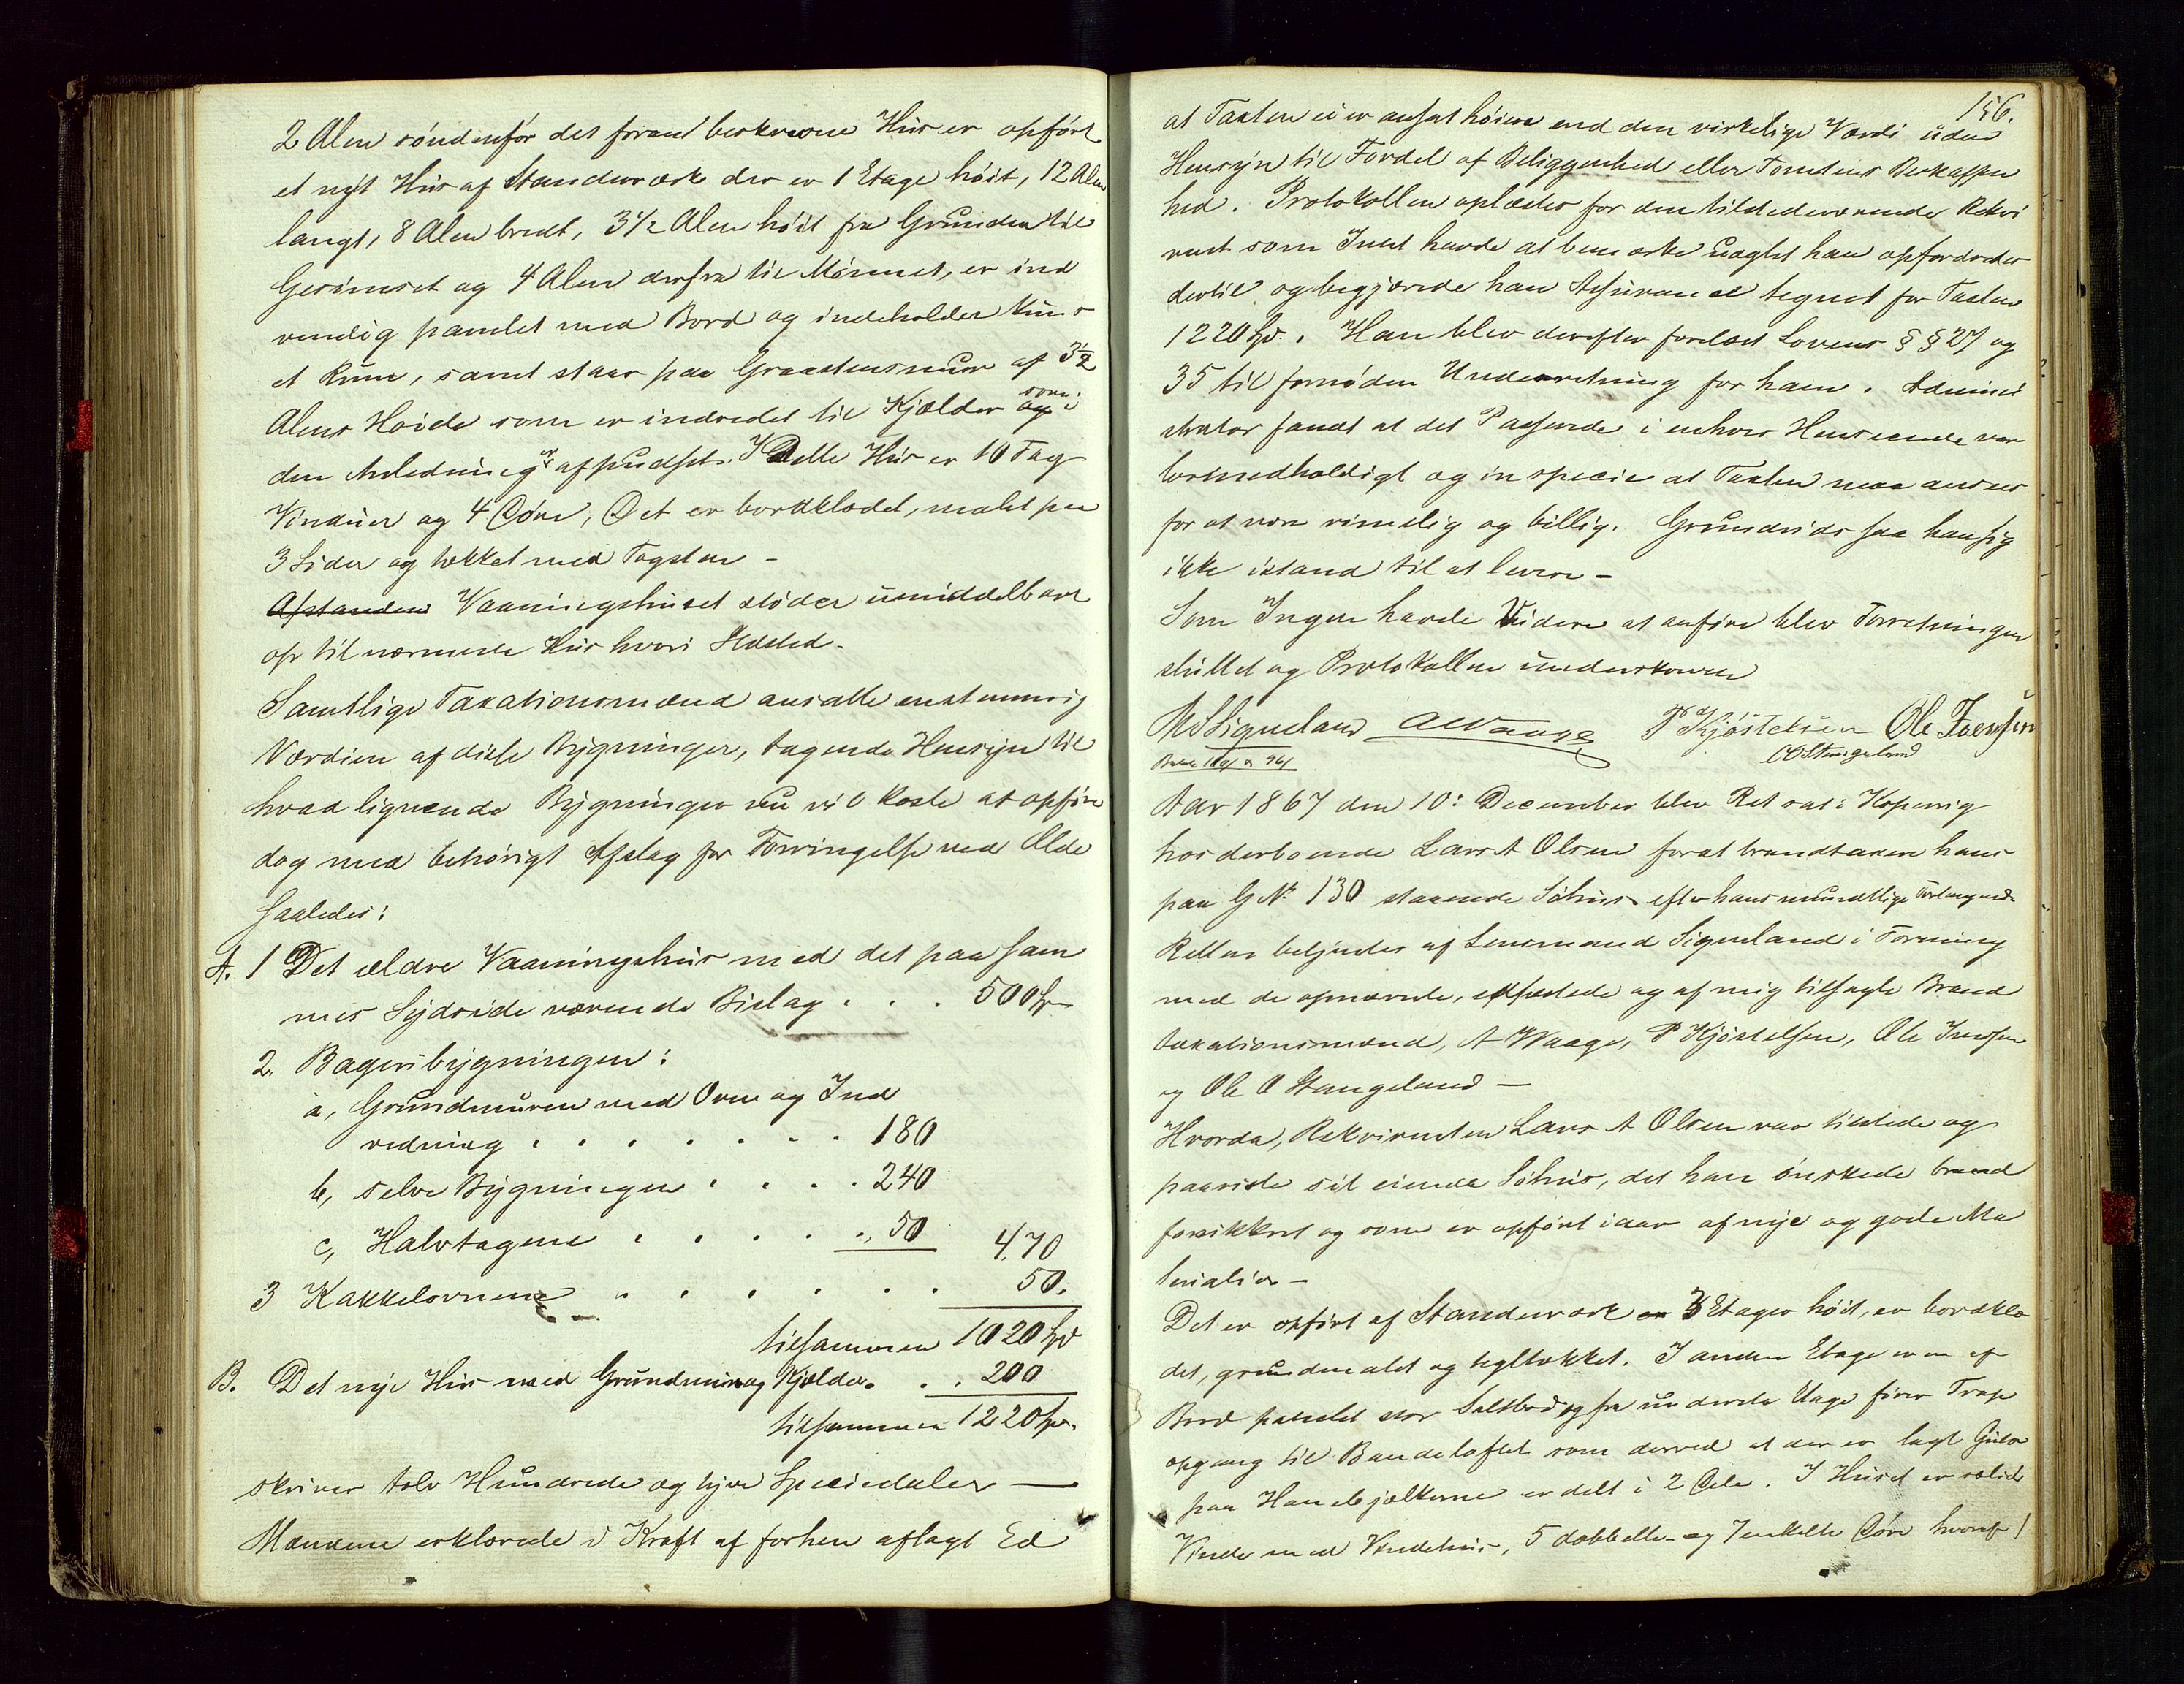 2 Alen søndenfor det foran beskrevne Hus er opført
et nyt Hus af Standerværk der er 1 Etage høit, 12 Alen
langt, 8 Alen bredt, 3 1/2 Alen høit fra Grunden til
Gesimset og 4 Alen derfra til Mønnet, er ind
vendig panelet med Bord og indeholder kun
et Rum, samt staar paa Graastensmur af 3 1/2
Alens Høide som er indredet til Kjelder og som i
den Anledning er afpudset. I Dette Hus er 10 Fag
Vinduer og 4 Døre, Det er bordklædet, malet paa
3 Sider og tækket med Tagsten -
Afstanden Vaaningshuset støder umiddelbart
op til nærmeste Hus hvori Ildsted.
Samtlige Taxationsmænd ansatte enstemmig
Værdien af disse Bygninger, tagende Hensyn til
hvad lignende Bygninger nu vil koste at opføre
dog med behørigt Afslag for Forringelse ved Ælde
saaledes:
A. 1 Det ældre Vaaningshus med det paa sam
mes Sydside værende Bislag . . . 500 Spd
2. Bageribygningen:
a, Grundmuren med Ovne og Ind
redning . . . . . . . 180
b, selve Bygningen . . . . 240
c, Halvtagene . . . . . 50 470
3 Kakkelovnene . . . . . . 50.
tilsammen 1020 Spd
B. Det nye Hus med Grundmur og Kjelder . . . 200
tilsammen 1220 Spd.
skriver tolv Hundrede og tyve Speciedaler —
Mændene erklærede i Kraft af forhen aflagt Ed
156.
at Taxten ei er ansat høiere end den virkelige Værdi uden
Hensyn til Fordel af Beliggenhed eller Tomtens Beskaffen
hed. Protokollen oplæstes for den tilstedeværende Rekvi
rent som Intet havde at bemærke uagtet han opfordredes
dertil og begjærede han Assurance tegnet for Taxten
1220 Spd. Han blev derefter forelæst Lovens § § 27 og
35 til fornøden Underretning for ham. Admini
strator fandt at det Passerede i enhver Henseende var
lovmedholdigt og in specie at Taxten maa ansees
for at være rimelig og billig. Grundrids saa han sig
ikke istand til at levere -
Som Ingen havde Videre at anføre blev Forretningen
sluttet og Protokollen underskreven
Sigueland A Waage P Kjøstelsen Ole Ivensen
O O Stangeland
Aar 1867 den 10: December blev Ret sat i Kopervig
hos derboende Lars A Olsen for at brandtaxere hans
paa G № 130 staaende Søhus efter hans mundtlige Forlangende
Retten betjentes af Lensmand Sigueland i Forening
med de opnævnte, edfæstede og af mig tilsagte Brand
taxationsmænd, A Waage, P Kjøstelsen, Ole Ivensen
og Ole O Stangeland —
Hvorda, Rekvirenten Lars A Olsen var tilstede og
paaviste sit eiende Søhus, det han ønskede brand
forsikkret og som er opført iaar af nye og gode Ma
terialier -
Det er opført af Standerværk 3 Etager høit, er bordklæ
det, grundmalet og tegltækket. I anden Etage er en af
Bord panelet stor Saltbod og fra underste Etage fører Trap
opgang til Bandeloftet som derved at der er lagt Gulv
paa Hanebjælkerne er delt i 2 Dele. I Huset er solid
Vinde med Vindehus, 5 dobbelte- og 7 enkelte Døre hvoraf 1